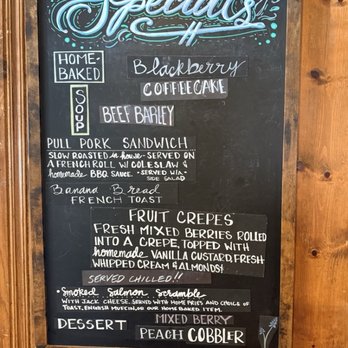 Specials
HOME-
BAKED
Blackberry
COFFEECAKE
SOUP
BEEF BARLEY
PULL PORK SANDWICH
SLOW ROASTED in-house - SERVED ON
A FRENCH ROLL W/ COLESLAW &
homemade BBQ SAUCE. •SERVED W/A•
SIDE SALAD
Banana Bread
FRENCH TOAST
FRUIT CREPES
FRESH MIXED BERRIES ROLLED
INTO A CREPE, TOPPED WITH
homemade VANILLA CUSTARD, FRESH
WHIPPED CREAM & ALMONDS!
SERVED CHILLED!!
• Smoked Salmon Scramble
WITH JACK CHEESE. SERVED WITH HOME FRIES AND CHOICE OF
TOAST, ENGLISH MUFFIN, OR HOME BAKED ITEM.
DESSERT
MIXED BERRY
PEACH COBBLER